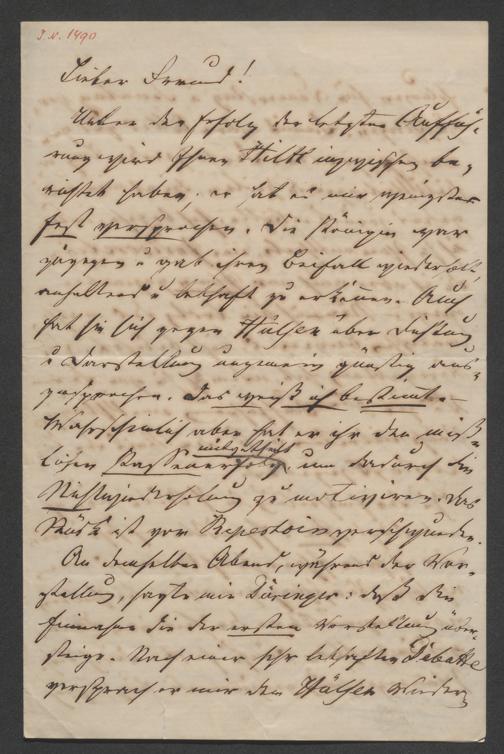 J. N. 1490
Lieber Freund!
Ueber den Erfolg der letzten Aufführ-
rung wird Ihnen Hiltl inzwischen be-
richtet haben; er hat es mir wenigstens
fest versprochen. Die Königin war
zugegen u gab ihren Beifall wiederholt,
anhaltend u lebhaft zu erkennen. Auch
hat sie sich gegen Hülsen über Dichtung
u Darstellung ungemein günstig aus-
gesprochen. Das weiß ich bestimt. –
Wahrscheinlich aber hat er ihr den miß-
lichen Kassenerfolg mitgetheilt um dadurch die
Nichtwiederholung zu motiviren. Das
Stück ist vom Repertoir verschwunden.
An demselben Abend, während der Vor-
stellung, sagte mir Düringer: daß die
Einnahme die der ersten Vorstellung über-
steige. Nach einer sehr lebhaften Debatte
versprach er mir den Hülsen